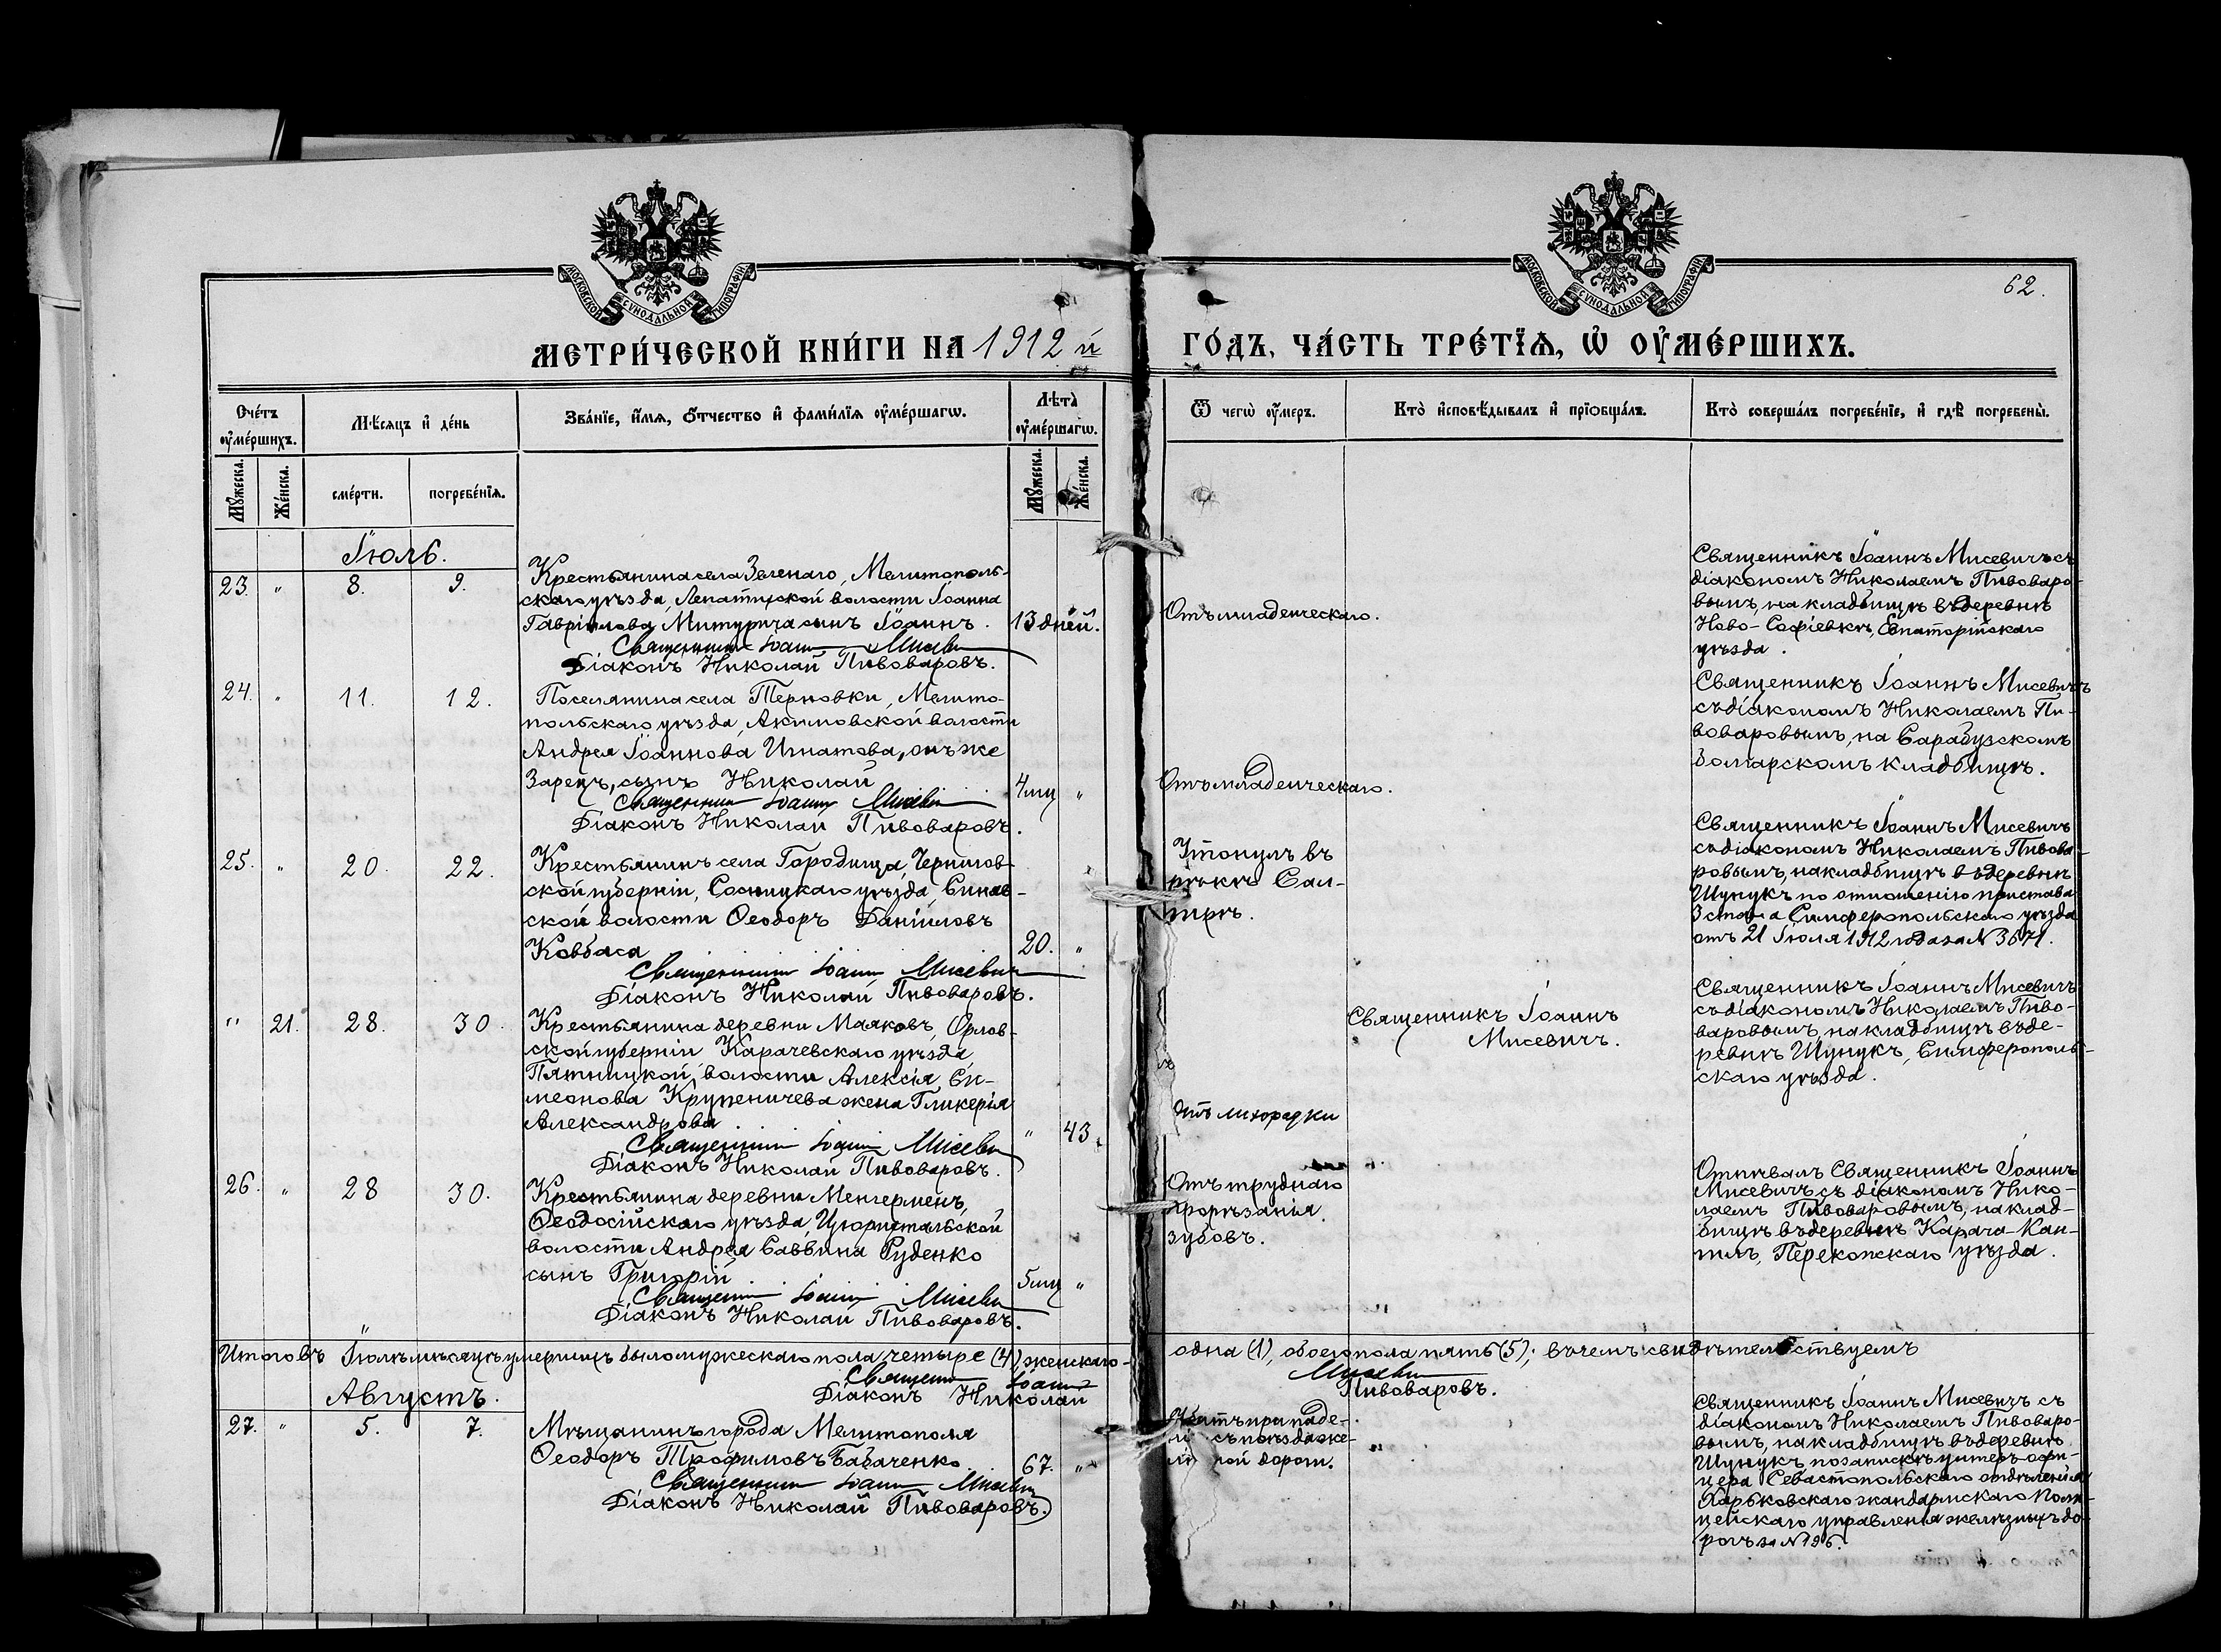 МОСКОВСКОЙ СѴНОДАЛЬНОЙ ТИПОГРАФІИ
МОСКОВСКОЙ СѴНОДАЛЬНОЙ ТИПОГРАФІИ
62.
МЕТРИ́ЧЕСКОЙ КНИ́ГИ НА 1912 й ГО́ДЪ, ЧА́СТЬ ТРЕ́ТЇѦ, Ѡ҆ ОУ҆МЕ́РШИХЪ.
Счéтъ оу҆мéршихъ.
Мѣ́сяцъ и҆ дéнь
Звáнїе, и҆́мя, ѻ҆́тчество и҆ фамѝлїя оу҆мéршагѡ.
Лѣ́та̀ оу҆мéршагѡ.
Ѿ чегѡ̀ оу҆́меръ.
Ктò и҆сповѣ́дывалъ и҆ прїѡбщáлъ.
Ктò совершáлъ погребéнїе, и҆ гдѣ̀ погребены̀.
Мꙋ́жеска.
Жéнска.
смéрти.
погребéнїя.
Мꙋ́жеска.
Жéнска.
Іюль.
23. " 8. 9.
Крестьянина села Зеленаго, Мелитополь-
скаго уѣзда, Лепатихской волости Іоанна
Гавріилова Митурича сынъ Іоаннъ. 13 дней.
Священникъ Іоаннъ Мисевичъ
Діаконъ Николай Пивоваровъ.
Отъ младенческаго.
Священникъ Іоаннъ Мисевичъ съ
діакономъ Николаемъ Пивоваро-
вымъ, на кладбищѣ въ деревнѣ
Ново-Софіевкѣ, Евпаторійскаго
уѣзда.
24. " 11. 12.
Поселянина села Терновки, Мелито-
польскаго уѣзда, Акимовской волости
Андрея Іоаннова Игнатова, онъ же
Зарецъ, сынъ Николай 4 мц "
Священникъ Іоаннъ Мисевичъ
Діаконъ Николай Пивоваровъ.
Отъ младенческаго.
Священникъ Іоаннъ Мисевичъ
съ діакономъ Николаемъ Пи-
воваровымъ, на Сарабузскомъ
болгарскомъ кладбищѣ.
25. " 20. 22.
Крестьянинъ села Городища, Чернигов-
ской губерніи, Сосницкаго уѣзда,
ской волости Ѳеодоръ Даніиловъ
Ковбаса 20. "
Священникъ Іоаннъ Мисевичъ
Діаконъ Николай Пивоваровъ.
Утонулъ въ
рѣкѣ Сал-
гирѣ.
Священникъ Іоаннъ Мисевичъ
съ діакономъ Николаемъ Пивова-
ровымъ, на кладбищѣ въ деревнѣ
Шунукъ по отношенію пристава
3 стана Симферопольскаго уѣзда
отъ 21 Іюля 1912 года за № 3671.
" 21. 28. 30.
Крестьянина деревни Маяковъ, Орлов-
ской губерніи Карачевскаго уѣзда,
Пятницкой волости Алексія Си-
меонова Крупеничева жена Гликерія
Александрова " 43.
Священникъ Іоаннъ Мисевичъ
Діаконъ Николай Пивоваровъ.
Отъ лихорадки
Священникъ Іоаннъ
Мисевичъ.
Священникъ Іоаннъ Мисевичъ
съ діакономъ Николаемъ Пиво-
варовымъ, на кладбищѣ въ де-
ревнѣ Шунукъ, Симферополь-
скаго уѣзда.
26. " 28 30.
Крестьянина деревни Менгерменъ,
Ѳеодосійскаго уѣзда, Цюрихтальской
волости Андрея Саввина Руденко
сынъ Григорій 5 мц "
Священникъ Іоаннъ Мисевичъ
Діаконъ Николай Пивоваровъ.
Отъ труднаго
прорѣзанія
зубовъ.
Отпѣвалъ Священникъ Іоаннъ
Мисевичъ съ діакономъ Нико-
лаемъ Пивоваровымъ, на клад-
бищѣ въ деревнѣ Карача-Кан-
гилъ, Перекопскаго уѣзда.
Итого въ Іюлѣ мѣсяцѣ умершихъ было мужескаго пола четыре (4), женскаго- одна (1), обоего пола пять (5); въ чемъ свидѣтельствуемъ
Священникъ Іоаннъ Мисевичъ
Діаконъ Николай Пивоваровъ.
Августъ.
27. " 5. 7.
Мѣщанинъ города Мелитополя
Ѳеодоръ Трофимовъ Бабаченко 67. "
Священникъ Іоаннъ Мисевичъ
Діаконъ Николай Пивоваровъ.
при паде-
съ поѣзда же-
ной дороги.
Священникъ Іоаннъ Мисевичъ съ
діакономъ Николаемъ Пивоваро-
вымъ, на кладбищѣ въ деревнѣ
Шунукъ по запискѣ унтеръ-офи-
цера Севастопольскаго отдѣленія
Харьковскаго жандармскаго Поли-
цейскаго управленія желѣзныхъ до-
рогъ за № 196.